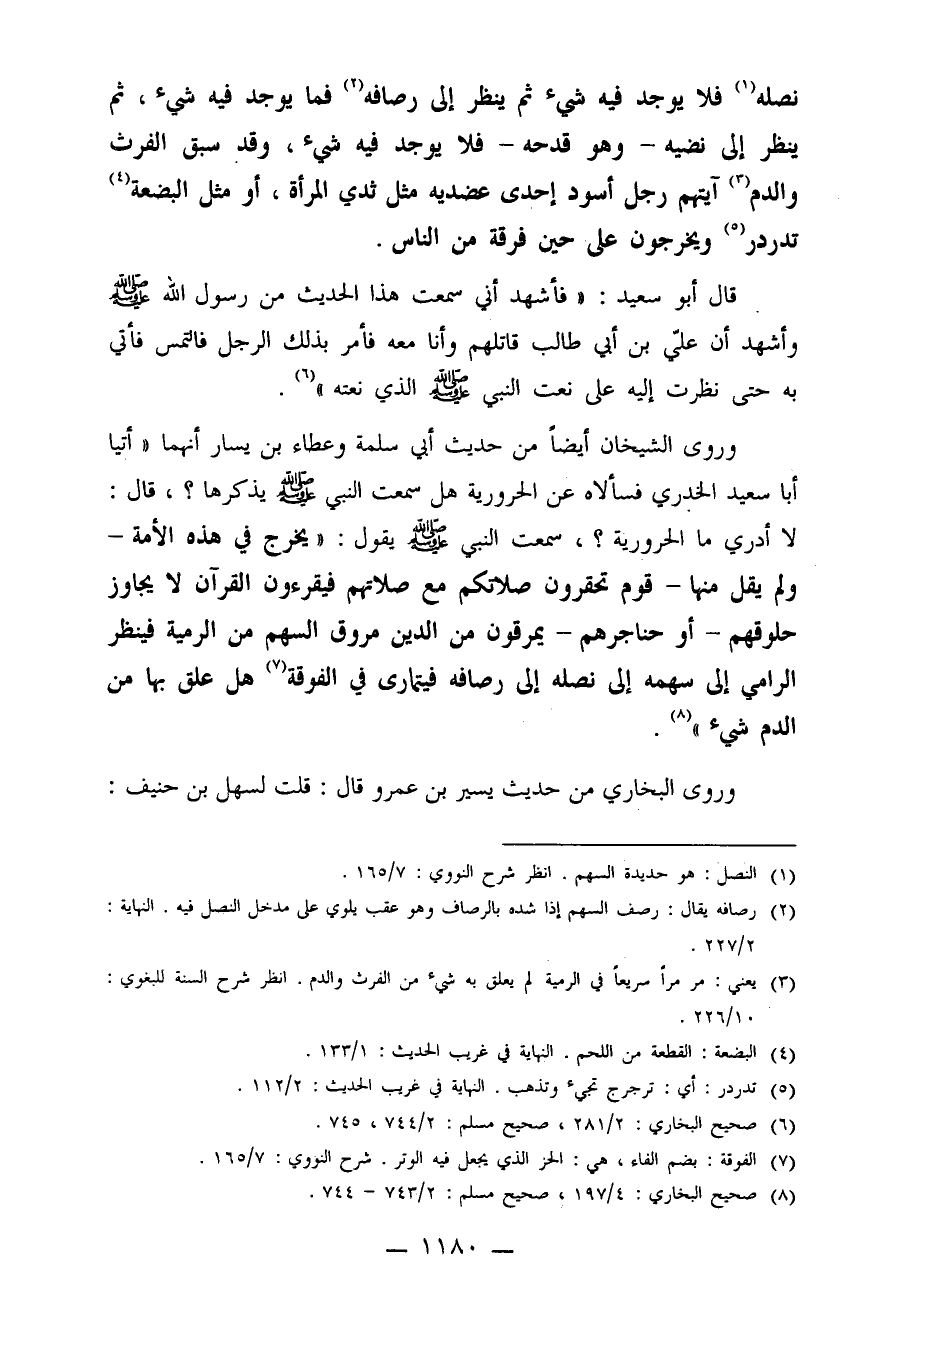 نصله(١) فلا يوجد فيه شيء ثم ينظر إلى رصافه(٢) فما يوجد فيه شيء ، ثم
ينظر إلى نضيه – وهو قدحه – فلا يوجد فيه شيء ، وقد سبق الفرث
والدم(٣) آيتهم رجل أسود إحدى عضديه مثل ثدي المرأة ، أو مثل البضعة(٤)
تدردر(٥) ويخرجون على حين فرقة من الناس .
قال أبو سعيد : « فأشهد أني سمعت هذا الحديث من رسول الله ﷺ
وأشهد أن عليّ بن أبي طالب قاتلهم وأنا معه فأمر بذلك الرجل فالتمس فأتي
به حتى نظرت إليه على نعت النبي ﷺ الذي نعته »(٦) .
وروى الشيخان أيضاً من حديث أبي سلمة وعطاء بن يسار أنهما « أتيا
أبا سعيد الخدري فسألاه عن الحرورية هل سمعت النبي ﷺ يذكرها ؟ ، قال :
لا أدري ما الحرورية ؟ ، سمعت النبي ﷺ يقول : « يخرج في هذه الأمة –
ولم يقل منها – قوم تحقرون صلاتكم مع صلاتهم فيقرءون القرآن لا يجاوز
حلوقهم – أو حناجرهم – يمرقون من الدين مروق السهم من الرمية فينظر
الرامي إلى سهمه إلى نصله إلى رصافه فيتمارى في الفوقة(٧) هل علق بها من
الدم شيء »(٨) .
وروى البخاري من حديث يسير بن عمرو قال : قلت لسهل بن حنيف :
(١) النصل : هو حديدة السهم . انظر شرح النووي : ١٦٥/٧ .
(٢) رصافه يقال : رصف السهم إذا شده بالرصاف وهو عقب يلوي على مدخل النصل فيه . النهاية :
٢٢٧/٢ .
(٣) يعني : مر مراً سريعاً في الرمية لم يعلق به شيء من الفرث والدم . انظر شرح السنة للبغوي :
٢٢٦/١٠ .
(٤) البضعة : القطعة من اللحم . النهاية في غريب الحديث : ١٣٣/١ .
(٥) تدردر : أي : ترجرج تجيء وتذهب . النهاية في غريب الحديث : ١١٢/٢ .
(٦) صحيح البخاري : ٢٨١/٢ ، صحيح مسلم : ٧٤٤/٢ ، ٧٤٥ .
(٧) الفوقة : بضم الفاء ، هي : الحز الذي يجعل فيه الوتر . شرح النووي : ١٦٥/٧ .
(٨) صحيح البخاري : ١٩٧/٤ ، صحيح مسلم : ٧٤٣/٢ – ٧٤٤ .
— ١١٨٠ —